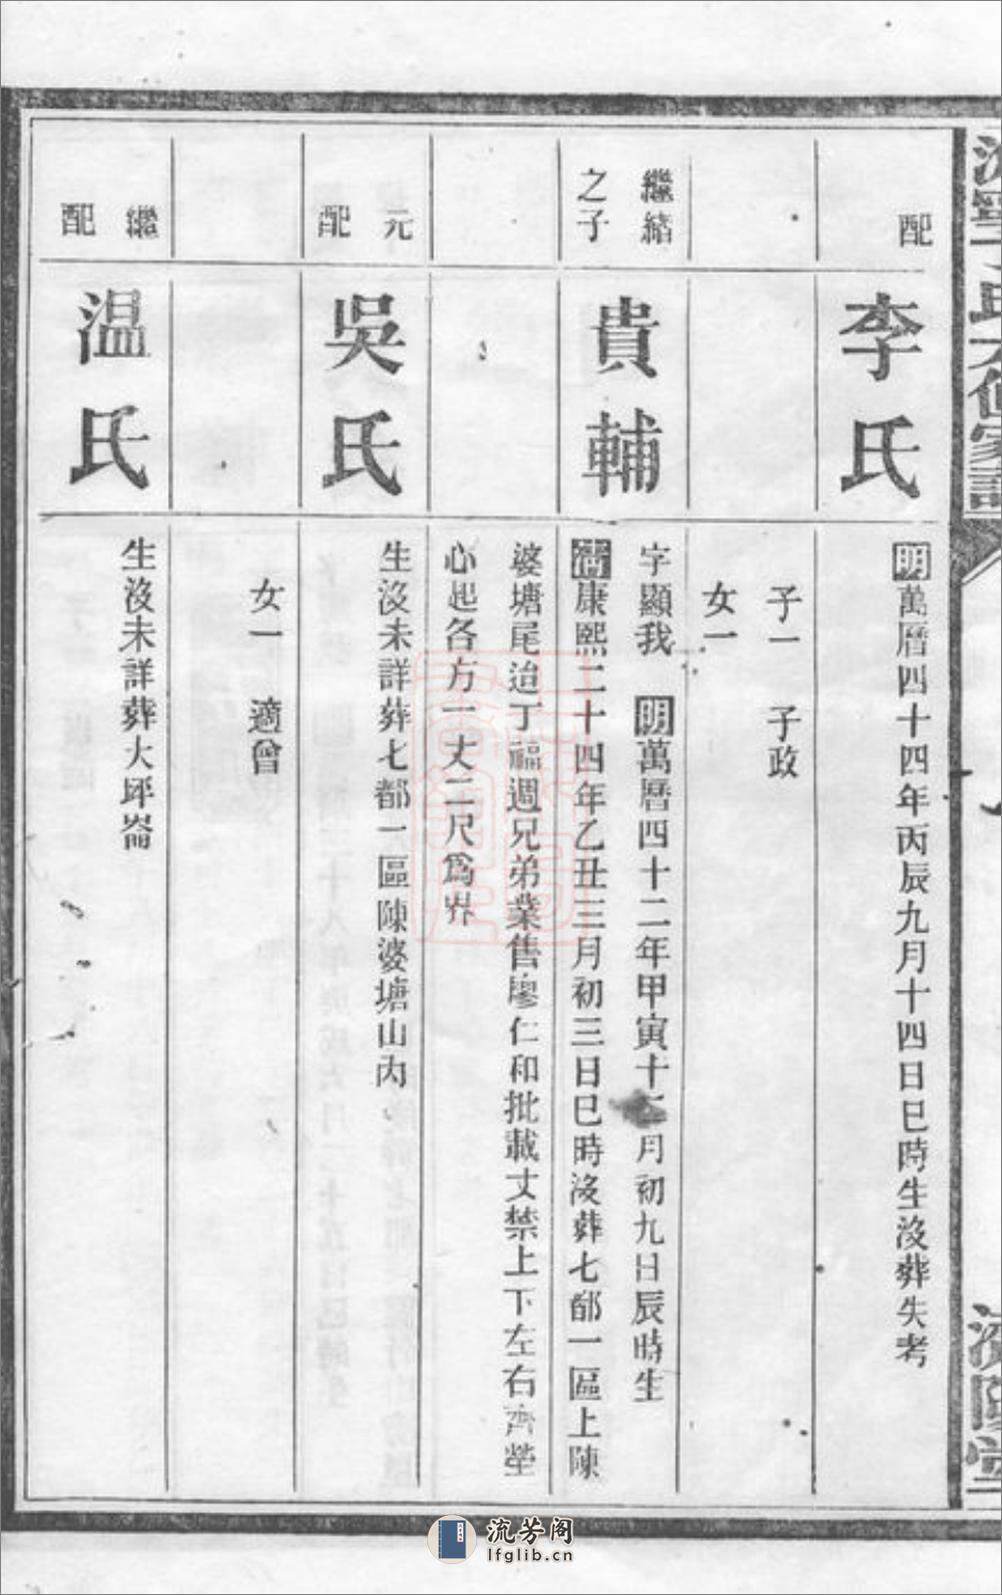 配
李氏
明萬曆四十四年丙辰九月十四日巳時生沒葬失考
子一 子政
女一
繼緒
之子
貴輔
字顯我 明萬曆四十二年甲寅十二月初九日辰時生
清康熙二十四年乙丑三月初三日巳時沒葬七都一區上陳
婆塘尾迨丁福週兄弟業售廖仁和批載丈禁上下左右齊塋
心起各方一丈二尺爲界
元
配
吳氏
生沒未詳葬七都一區陳婆塘山內
女一 適曾
繼
配
温氏
生沒未詳葬大坪崙
濟陽堂
流芳阁
lfglib.cn